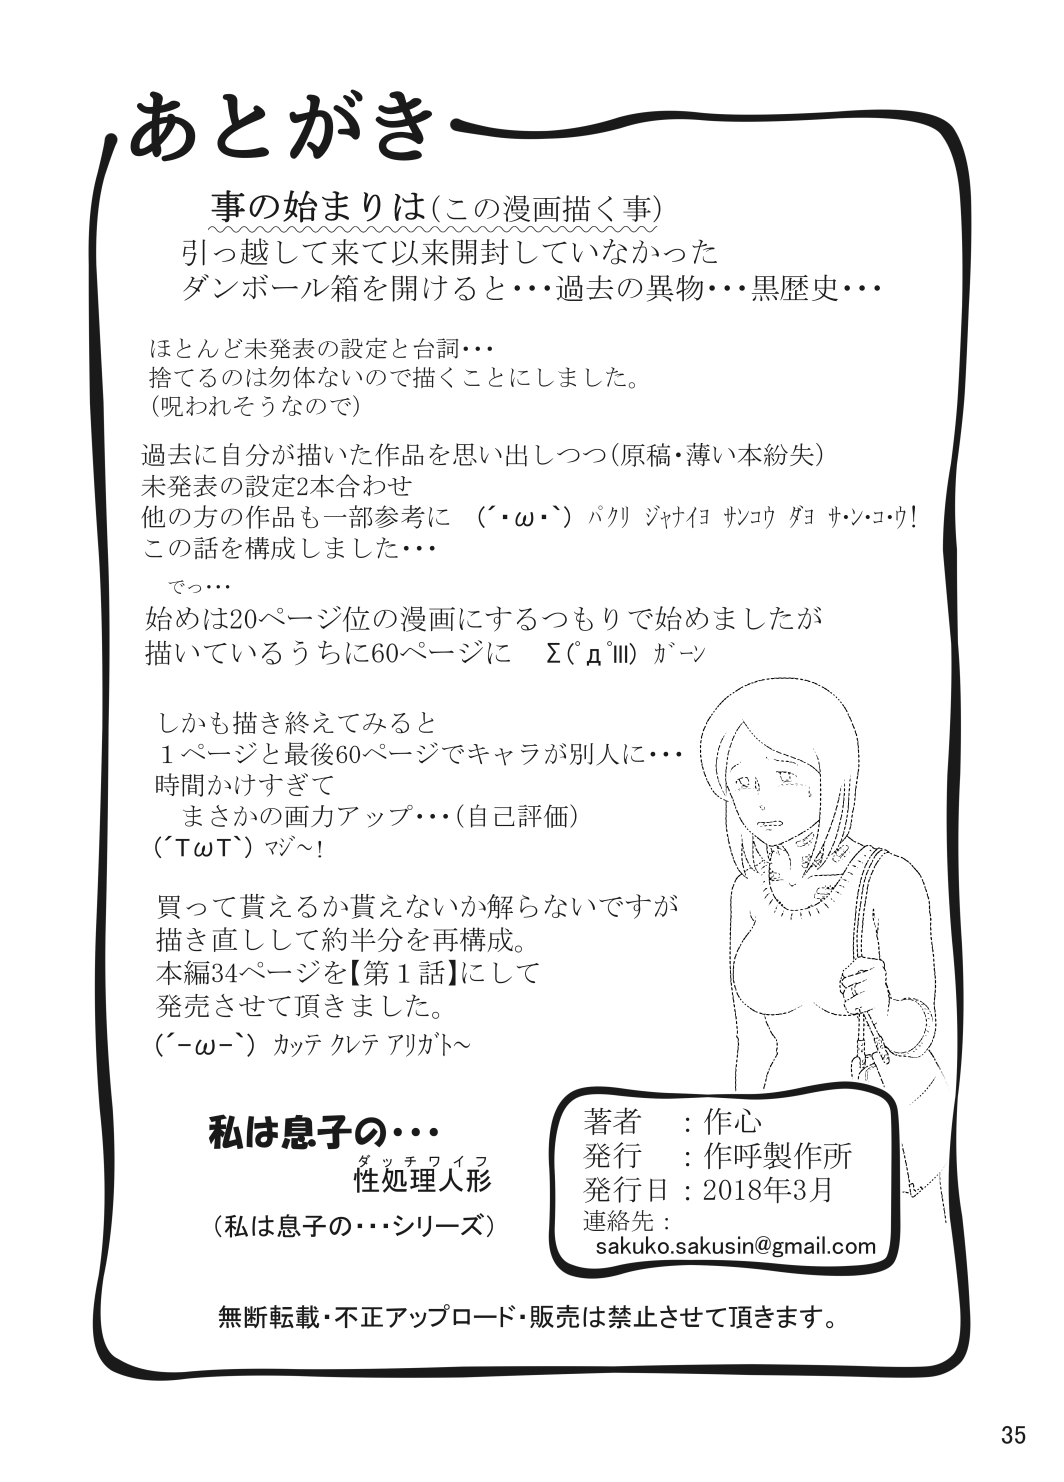 あとがき
事の始まりは(この漫画描く事)
引っ越して来て以来開封していなかった
ダンボール箱を開けると・・・過去の異物・・・黒歴史・・・
ほとんど未発表の設定と台詞・・・
捨てるのは勿体ないので描くことにしました。
(呪われそうなので)
過去に自分が描いた作品を思い出しつつ(原稿・薄い本紛失)
未発表の設定2本合わせ
他の方の作品も一部参考に (´・ω・`) ﾊﾟｸﾘ ｼﾞｬﾅｲﾖ ｻﾝｺｳ ﾀﾞﾖ ｻ・ﾝ・ｺ・ｳ!
この話を構成しました・・・
でっ・・・
始めは20ページ位の漫画にするつもりで始めましたが
描いているうちに60ページに Σ(ﾟдﾟlll) ｶﾞｰﾝ
しかも描き終えてみると
１ページと最後60ページでキャラが別人に・・・
時間かけすぎて
まさかの画力アップ・・・(自己評価)
(´TωT`) ﾏｼﾞ～!
買って貰えるか貰えないか解らないですが
描き直しして約半分を再構成。
本編34ページを【第１話】にして
発売させて頂きました。
(´-ω-`) ｶｯﾃ ｸﾚﾃ ｱﾘｶﾞﾄ～
私は息子の・・・
ダッチワイフ
性処理人形
(私は息子の・・・シリーズ)
著者 ：作心
発行 ：作呼製作所
発行日：2018年3月
連絡先：
sakuko.sakusin@gmail.com
無断転載・不正アップロード・販売は禁止させて頂きます。
35